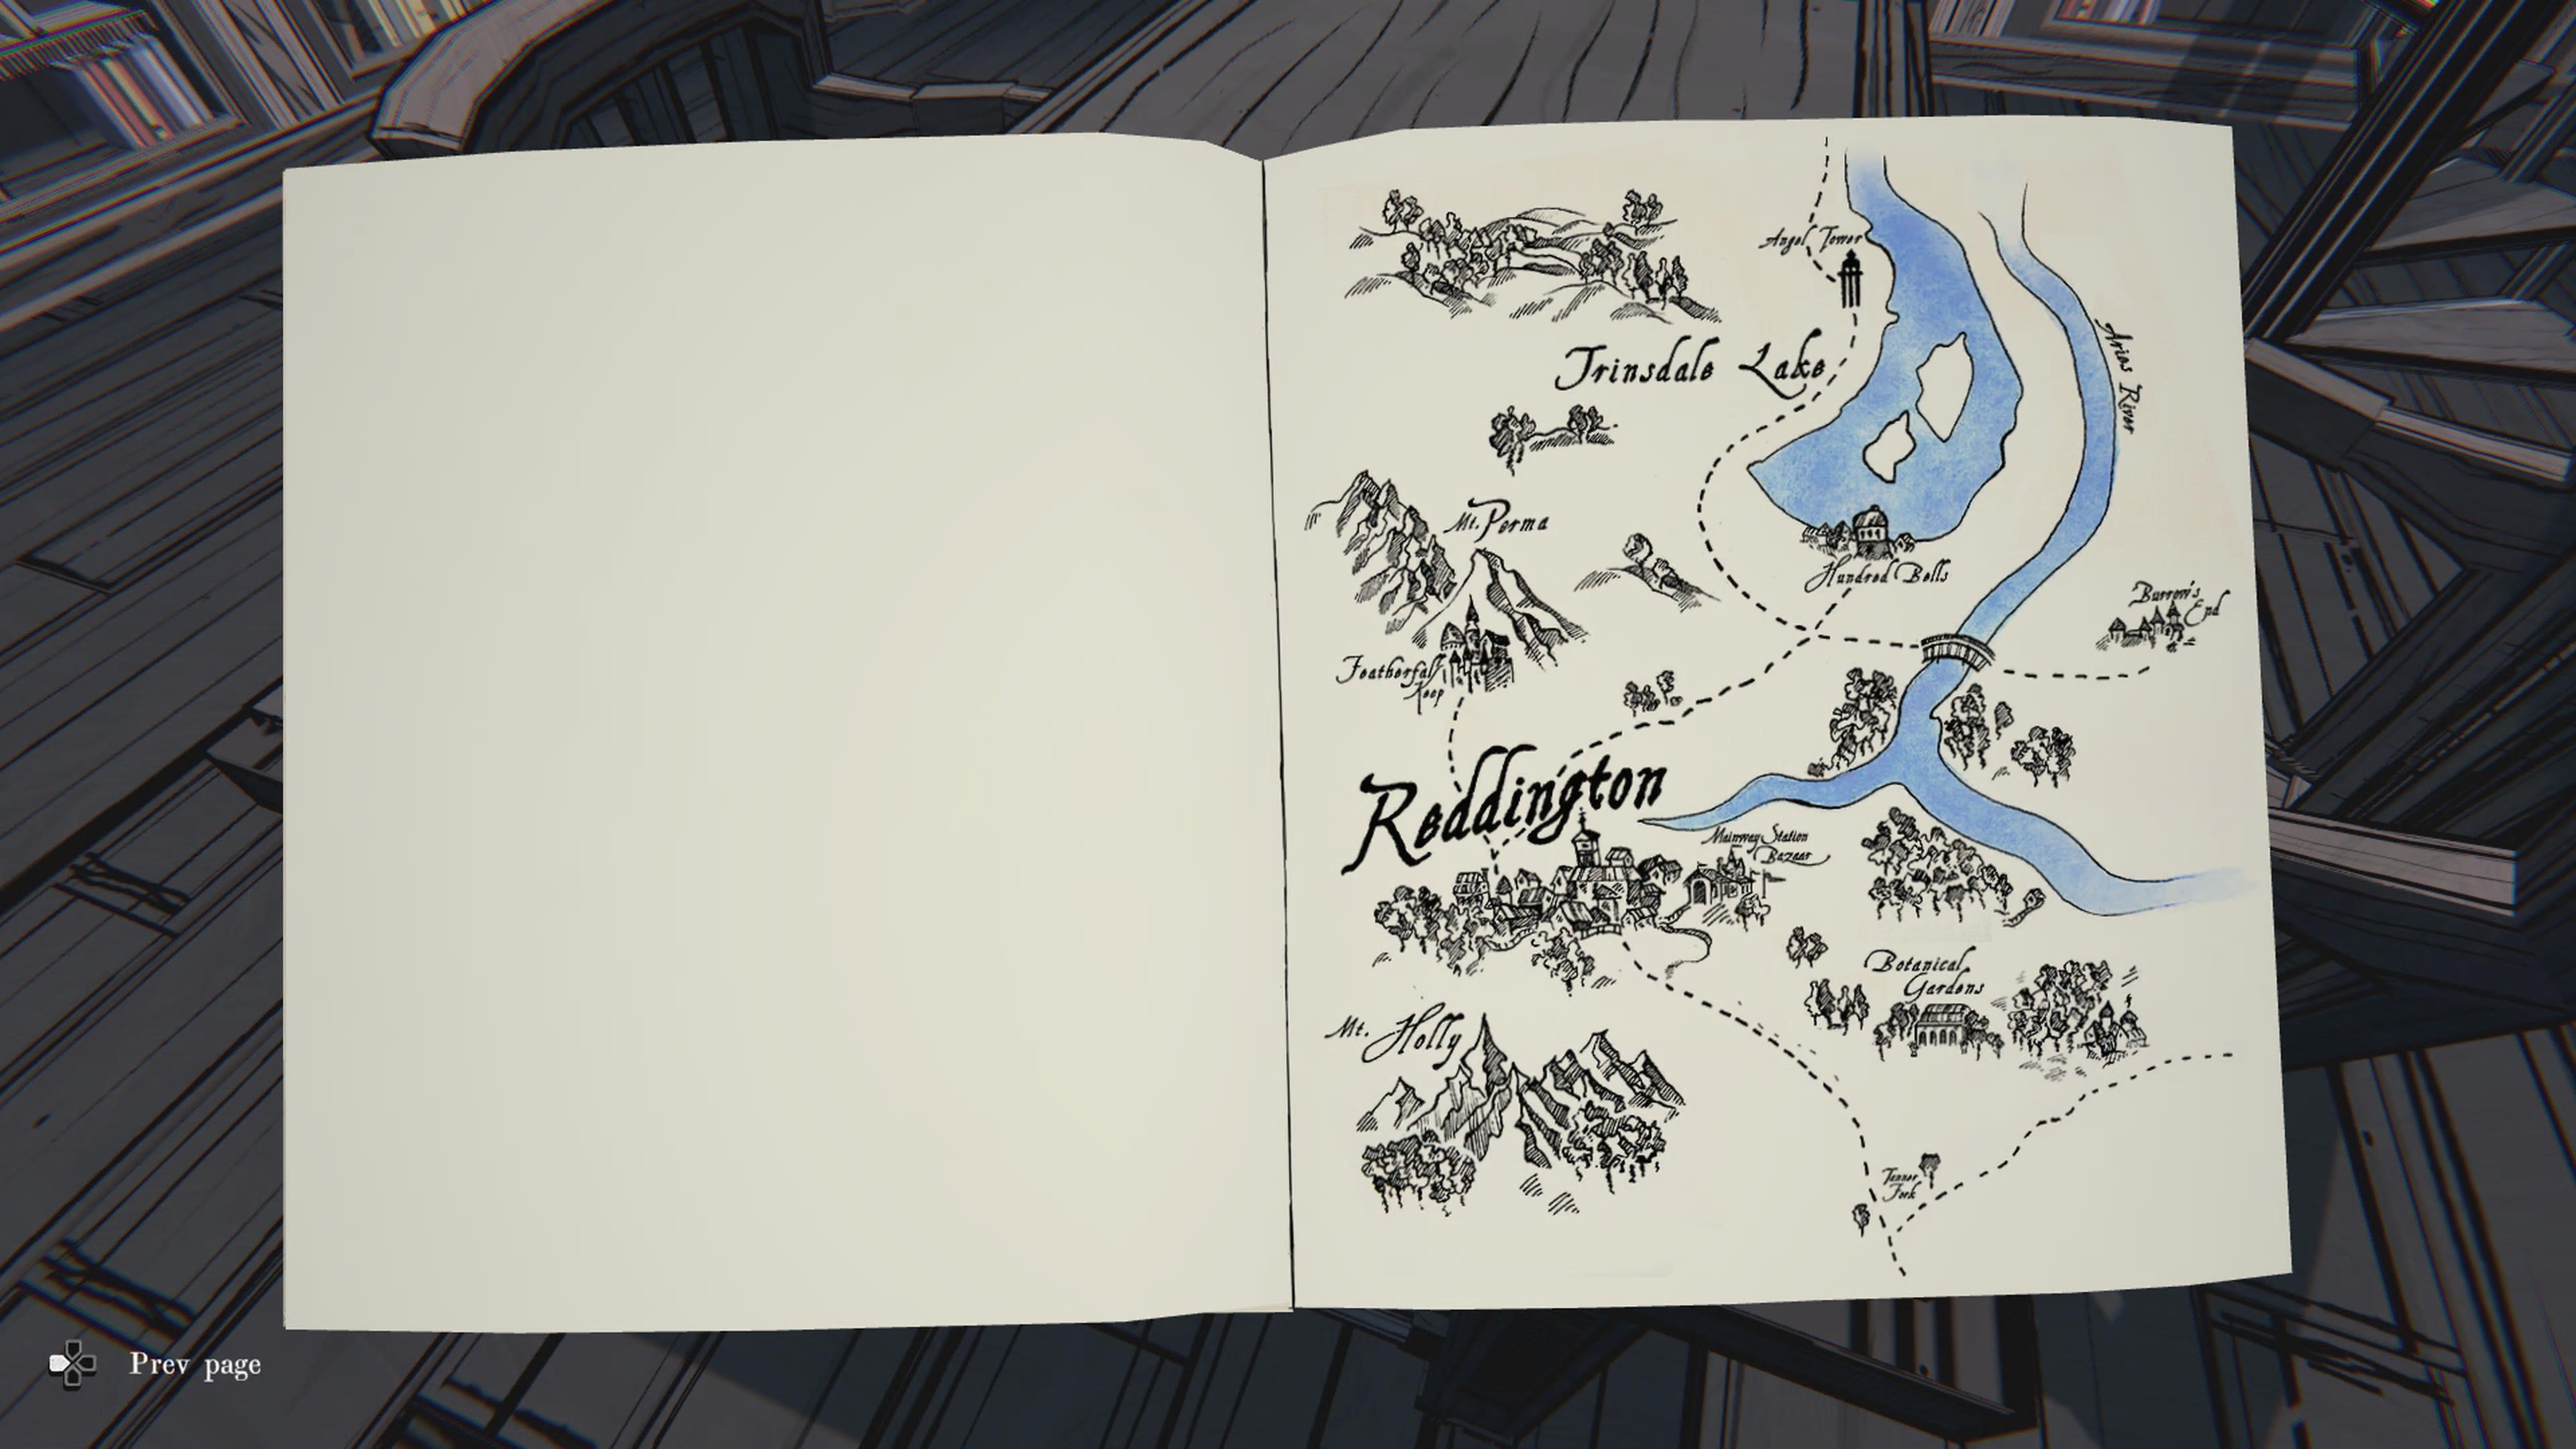 Angel Tower
Trinsdale Lake
Aries River
Mt. Perma
Hundred Bells
Burrow's
End
Featherfall
Keep
Reddington
Mainway Station
Bazaar
Botanical
Gardens
Mt. Holly
Fork
Prev page